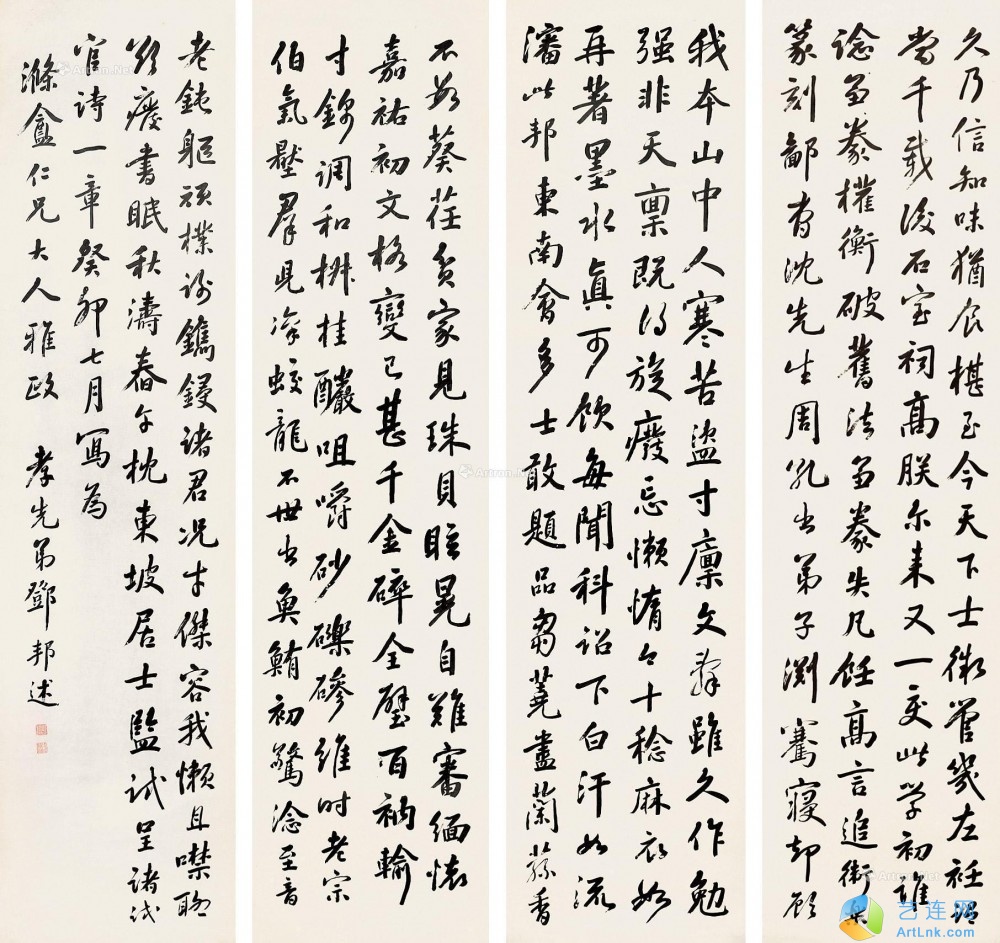 久乃信知味猶食椹至今天下士微管幾左衽謂
當千載後石室祠高朕尔来又一变此學初誰
諗芻豢權衡破舊法芻豢笑凡飪高言追衛樂
篆刻鄙曹沈先生周孔出弟子渊騫寢却顧
我本山中人寒苦盜寸廩文辭雖久作勉
强非天禀既得旋癈忘懒惰今十稔麻衣如
再著墨水真可飲每聞科詔下白汗如流
瀋此邦東南會多士敢題品芻蕘盡蘭蓀香
不數葵荏貧家見珠貝眩晃自難審緬懷
嘉祐初文格變已甚千金碎全璧百衲輸
寸錦調和椒桂釅咀嚼砂礫磣維时老宗
伯氣壓羣兒凛蛟龍不世出魚鮪初驚淰至音
老鈍軀頑樸謝鐫鋟諸君况才傑容我懒且噤聊
欲癈書眠秋濤舂午枕東坡居士監試呈諸試
官詩一章癸卯七月寫為
滌盦仁兄大人雅政 孝先弟鄧邦述
艺连网
ArtLnk.com